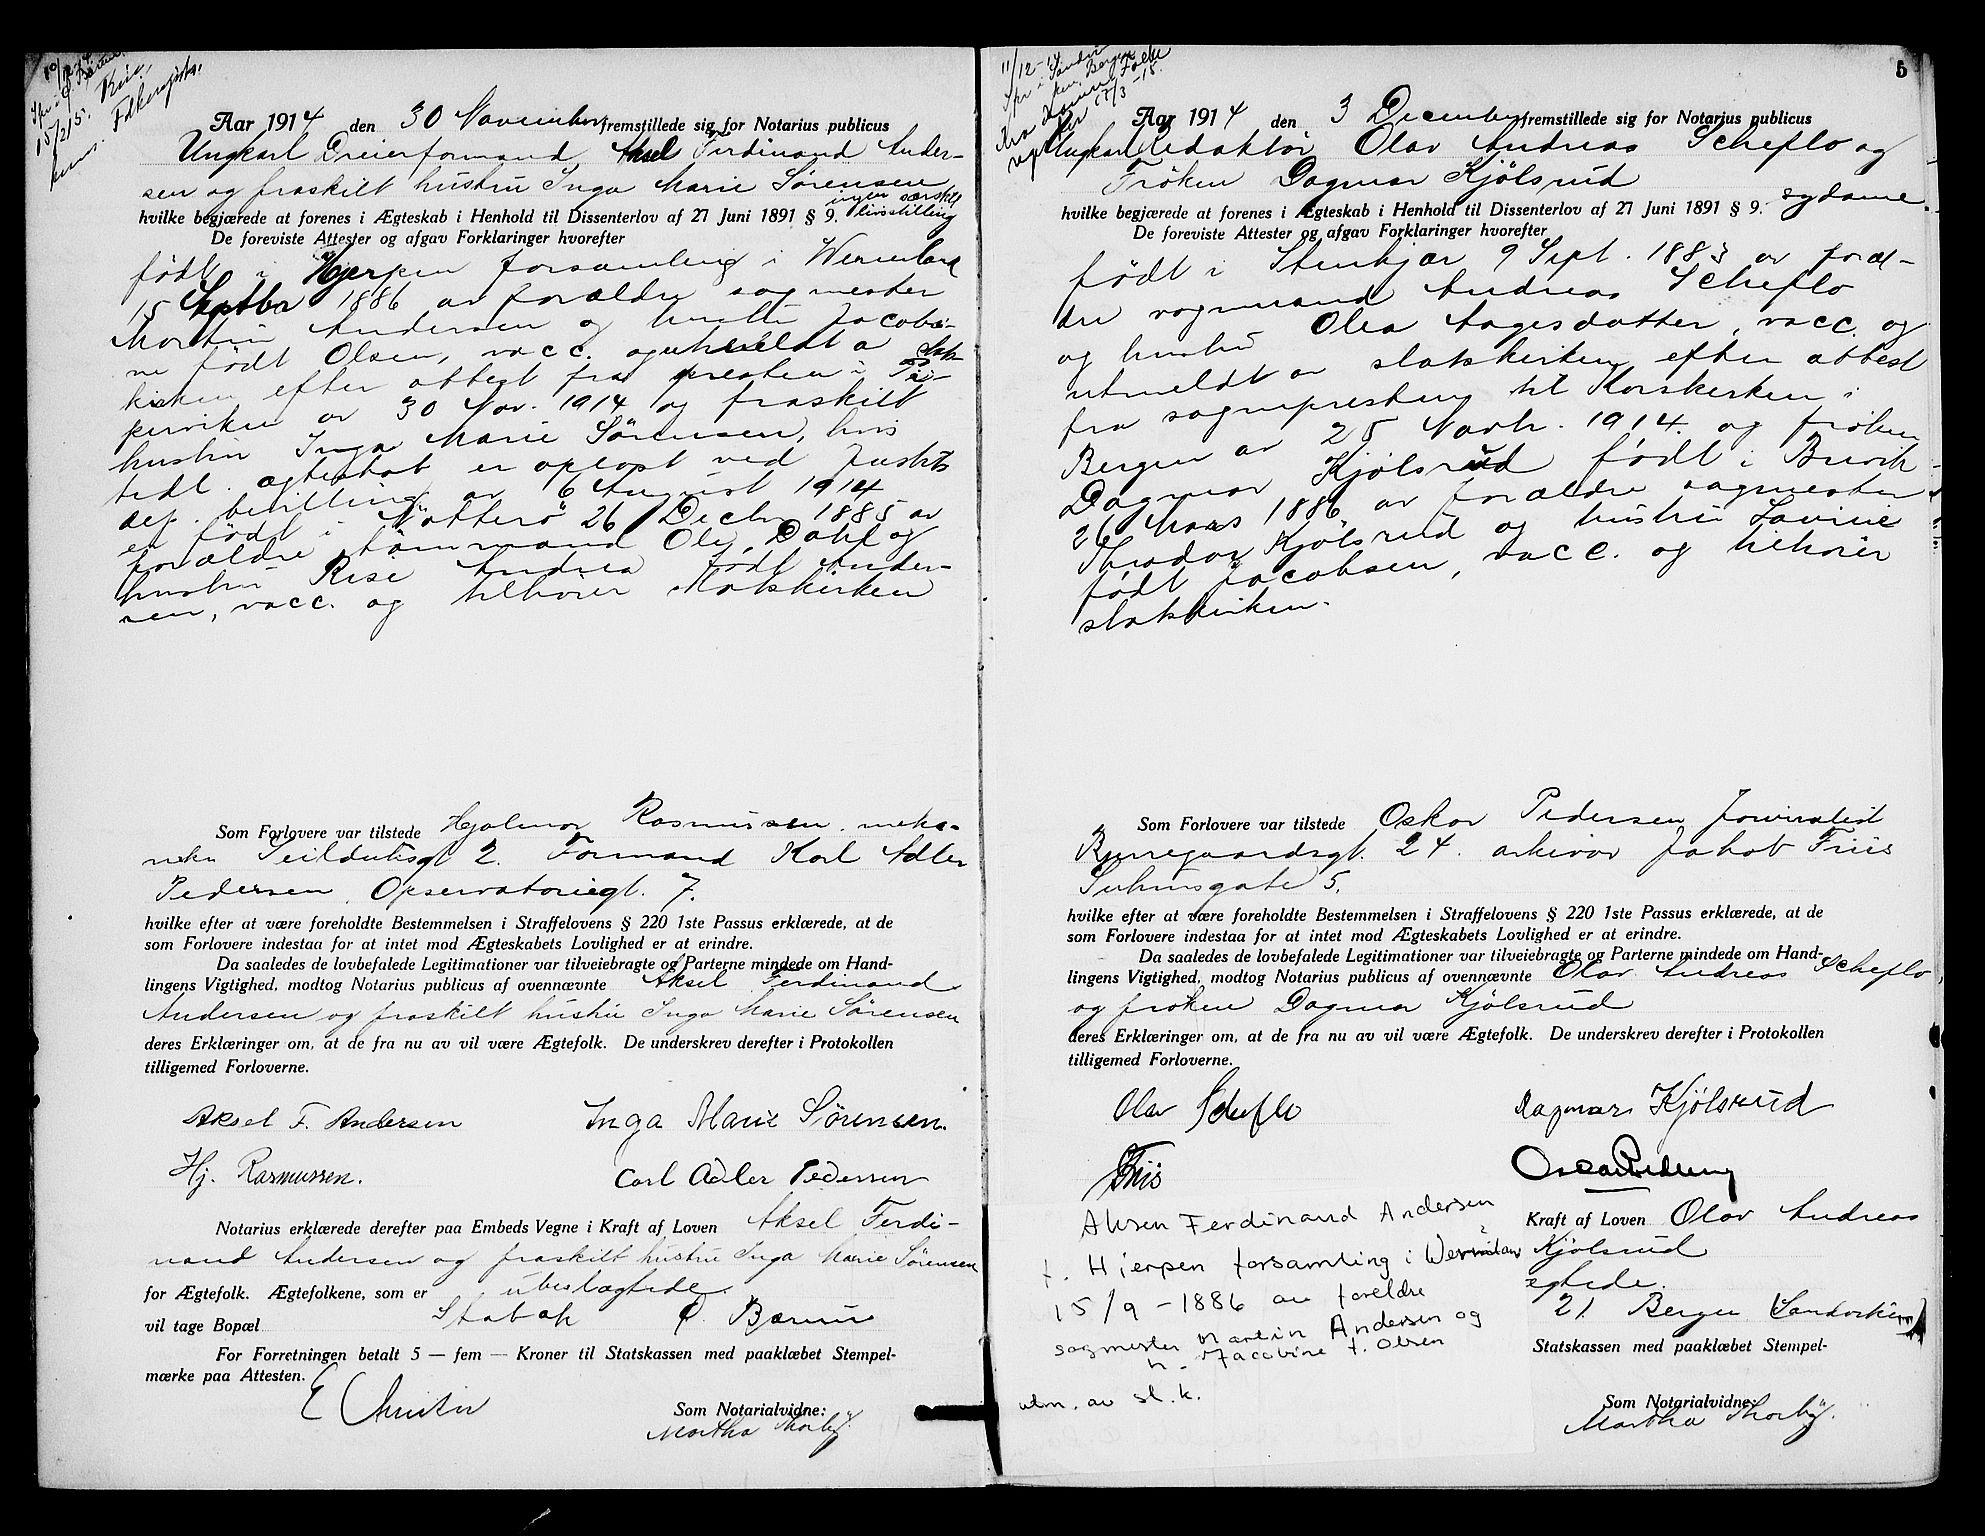 Aar 1914 den 30 November fremstillede sig for Notarius publicus
Ungkarl Dreierformand Aksel Ferdinand Ander-
sen og fraskilt hustru Inga Marie Sørensen
ingen særskilt
hvilke begjærede at forenes i Ægteskab i Henhold til Dissenterlov af 27 Juni 1891 § 9. livsstilling
De foreviste Attester og afgav Forklaringer hvorefter
født i Hjerpen forsamling i Wermland
15 Septbr 1886 av forældre sagmester
Martin Andersen og hustru Jacobi-
ne født Olsen, vacc. og utmeldt a stats
kirken efter attest fra presten i Pi-
perviken av 30 Nov. 1914 og fraskilt
hustru Inga Marie Sørensen, hvis
tidl. egteskab er opløst ved Justits
dep. bevilling av 6 August 1914
er født i Nøtterö 26 Decbr 1885 av
forældre tømmermand Ole Dahl og
hustru Rise Andrea født Ander-
sen, vacc. og tilhører statskirken
Som Forlovere var tilstede Hjalmar Rasmussen meka-
niker Seilduksgt 2. Formand Karl Adler
Pedersen Opservatoriegt. 7.
hvilke efter at være foreholdte Bestemmelsen i Straffelovens § 220 1ste Passus erklærede, at de
som Forlovere indestaa for at intet mod Ægteskabets Lovlighed er at erindre.
Da saaledes de lovbefalede Legitimationer var tilveiebragte og Parterne mindede om Hand-
lingens Vigtighed, modtog Notarius publicus af ovennævnte Aksel Ferdinand
Andersen og fraskilt hustru Inga Marie Sørensen
deres Erklæringer om, at de fra nu av vil være Ægtefolk. De underskrev derefter i Protokollen
tilligemed Forloverne.
Aksel F. Andersen Inga Marie Sørensen.
Hj. Rasmussen. Carl Adler Pedersen
Notarius erklærede derefter paa Embeds Vegne i Kraft af Loven Aksel Ferdi-
nand Andersen og fraskilt hustru Inga Marie Sørensen
for Ægtefolk. Ægtefolkene, som er ubeslægtede.
vil tage Bopæl Stabæk Bærum
For Forretningen betalt 5 — fem — Kroner til Statskassen med paaklæbet Stempel-
mærke paa Attesten.
Som Notarialvidne:
Martha Thorby.
5
11/12-14
Aar 1914 den 3 December fremstillede sig for Notarius publicus
Ungkarl Redaktør Olav Andreas Scheflo og
Frøken Dagmar Kjølsrud
sydame.
hvilke begjærede at forenes i Ægteskab i Henhold til Dissenterlov af 27 Juni 1891 § 9.
De foreviste Attester og afgav Forklaringer hvorefter
født i Stenkjær 9 Sept. 1883 av foræl-
dre vognmand Andreas Scheflo
og hustru Olea Aagesdatter, vacc. og
utmeldt av statskirken efter attest
fra sognepresten til Korskirken i
Bergen av 25 Novbr. 1914. og frøken
Dagmar Kjølsrud født i
26 Mars 1886 av forældre sagmester
Theodor Kjølsrud og hustru Lovine
født Jacobsen, vacc. og tilhører
statskirken.
Som Forlovere var tilstede Oskar Pedersen Journalist
Bjerregaardsgt. 24. arkivar Jakob Friis
Suhmsgate 5.
hvilke efter at være foreholdte Bestemmelsen i Straffelovens § 220 1ste Passus erklærede, at de
som Forlovere indestaa for at intet mod Ægteskabets Lovlighed er at erindre.
Da saaledes de lovbefalede Legitimationer var tilveiebragte og Parterne mindede om Hand-
lingens Vigtighed, modtog Notarius publicus af ovennævnte Olav Andreas Scheflo
og frøken Dagmar Kjølsrud
deres Erklæringer om, at de fra nu av vil være Ægtefolk. De underskrev derefter i Protokollen
tilligemed Forloverne.
Olav Scheflo Dagmar Kjølsrud
Friis Oscar Pedersen
Aksen Ferdinand Andersen
f. Hjerpen forsamling i Wermland
15/9-1886 av foreldre
sagmester Martin Andersen og
h. Jacobine f. Olsen
utm. av st.k.
Kraft af Loven Olav Andreas
Kjølsrud
egtede.
21 Bergen Sandviken
Statskassen med paaklæbet Stempel-
Som Notarialvidne:
Martha Thorby.